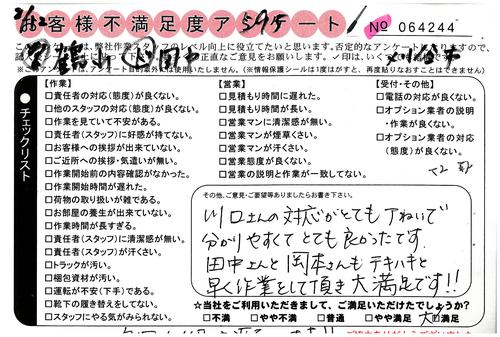 2/62 お客様不満足度アンケート
No 064244
は、弊社作業スタッフのレベル向上に役立てたいと思います。否定的なアンケート
正直なご意見をお願いします。✓印は、いくつ
(※情報保護シールは1度はがすと、再度貼りなおすことはできません)
チェックリスト
【作業】
□責任者の対応(態度)が良くない。
□他のスタッフの対応(態度)が良くない。
□作業を見ていて不安がある。
□責任者(スタッフ)に好感が持てない。
□お客様への挨拶が出来ていない。
□ご近所への挨拶・気遣いが無い。
□作業開始前の内容確認がなかった。
□作業開始時間が遅れた。
□荷物の取り扱いが雑である。
□お部屋の養生が出来ていない。
□作業時間が長すぎる。
□責任者(スタッフ)に清潔感が無い。
□責任者(スタッフ)が汗くさい。
□トラックが汚い。
□梱包資材が汚い。
□運転が不安(下手)である。
□靴下の履き替えをしてない。
□スタッフにやる気がみられない。
【営業】
□見積もり時間に遅れた。
□見積もり時間が長い。
□営業マンに清潔感が無い。
□営業マンが煙草くさい。
□営業マンが汗くさい。
□営業態度が良くない。
□営業の説明と作業が一致してない。
【受付・その他】
□電話の対応が良くない。
□オプション業者の説明
・作業が良くない。
□オプション業者の対応
(態度)が良くない。
その他、ご意見・ご要望等ありましたらお書き下さい。
川口さんの対応がとても丁ねいで
分かりやすくてとても良かったです。
田中さんと岡本さんもテキパキと
早く作業をして頂き大満足です!!
☆当社をご利用いただきまして、ご満足いただけたでしょうか?
□不満 □やや不満 □普通 □やや満足 大満足